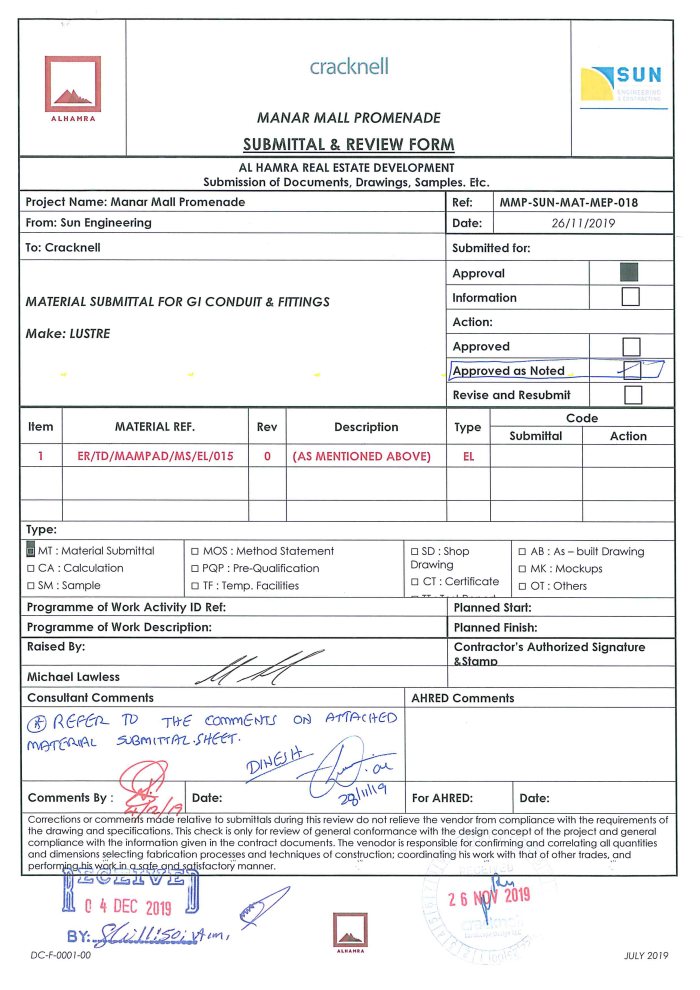 ALHAMRA
cracknell
SUN
ENGINEERING
& CONTRACTING
MANAR MALL PROMENADE
SUBMITTAL & REVIEW FORM
AL HAMRA REAL ESTATE DEVELOPMENT
Submission of Documents, Drawings, Samples. Etc.
Project Name: Manar Mall Promenade
Ref: MMP-SUN-MAT-MEP-018
From: Sun Engineering
Date: 26/11/2019
To: Cracknell
Submitted for:
Approval
MATERIAL SUBMITTAL FOR GI CONDUIT & FITTINGS
Information
Action:
Make: LUSTRE
Approved
Approved as Noted
Revise and Resubmit
Item MATERIAL REF. Rev Description Type Code
Submittal Action
1 ER/TD/MAMPAD/MS/EL/015 0 (AS MENTIONED ABOVE) EL
Type:
MT : Material Submittal
□ CA : Calculation
□ SM : Sample
□ MOS : Method Statement
□ PQP : Pre-Qualification
□ TF : Temp. Facilities
□ SD : Shop
Drawing
□ CT : Certificate
□ AB : As – built Drawing
□ MK : Mockups
□ OT : Others
Programme of Work Activity ID Ref:
Planned Start:
Programme of Work Description:
Planned Finish:
Raised By:
Contractor's Authorized Signature
&Stamp
Michael Lawless
Consultant Comments
AHRED Comments
REFER TO THE COMMENTS ON ATTACHED
MATERIAL SUBMITTAL SHEET.
DINESH
28/11/19
Comments By :
4/12/19
Date:
For AHRED:
Date:
Corrections or comments made relative to submittals during this review do not relieve the vendor from compliance with the requirements of
the drawing and specifications. This check is only for review of general conformance with the design concept of the project and general
compliance with the information given in the contract documents. The venodor is responsible for confirming and correlating all quantities
and dimensions selecting fabrication processes and techniques of construction; coordinating his work with that of other trades, and
performing his work in a safe and satisfactory manner.
RECEIVED
04 DEC 2019
BY:
26 NOV 2019
cracknell
ALHAMRA
DC-F-0001-00
JULY 2019